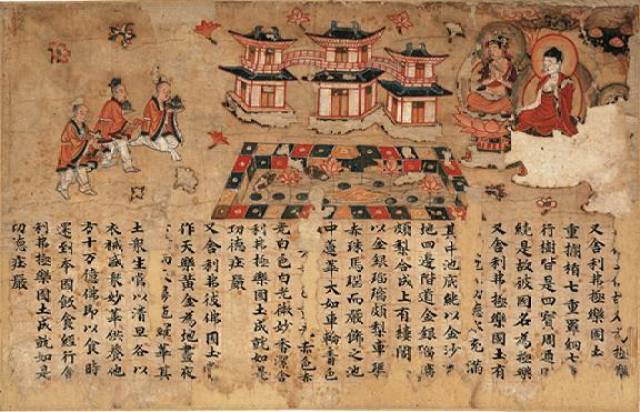 極樂
又舍利弗極樂國土
重欄楯七重羅網七
行樹皆是四寶周匝
繞是故彼國名為極樂
又舍利弗極樂國土有
充滿
其中池底純以金沙
地四邊階道金銀瑠璃
頗梨合成上有樓閣
以金銀瑠璃頗梨車璖
赤珠馬瑙而嚴飾之池
中蓮華大如車輪青色
赤色赤
光白色白光微妙香潔舍
利弗極樂國土成就如是
功德莊嚴
又舍利弗彼佛國土
作天樂黃金為地晝夜
羅華其
土眾生常以清旦各以
衣裓盛眾妙華供養他
方十万億佛即以食時
還到本國飯食經行舍
利弗極樂國土成就如是
功德莊嚴